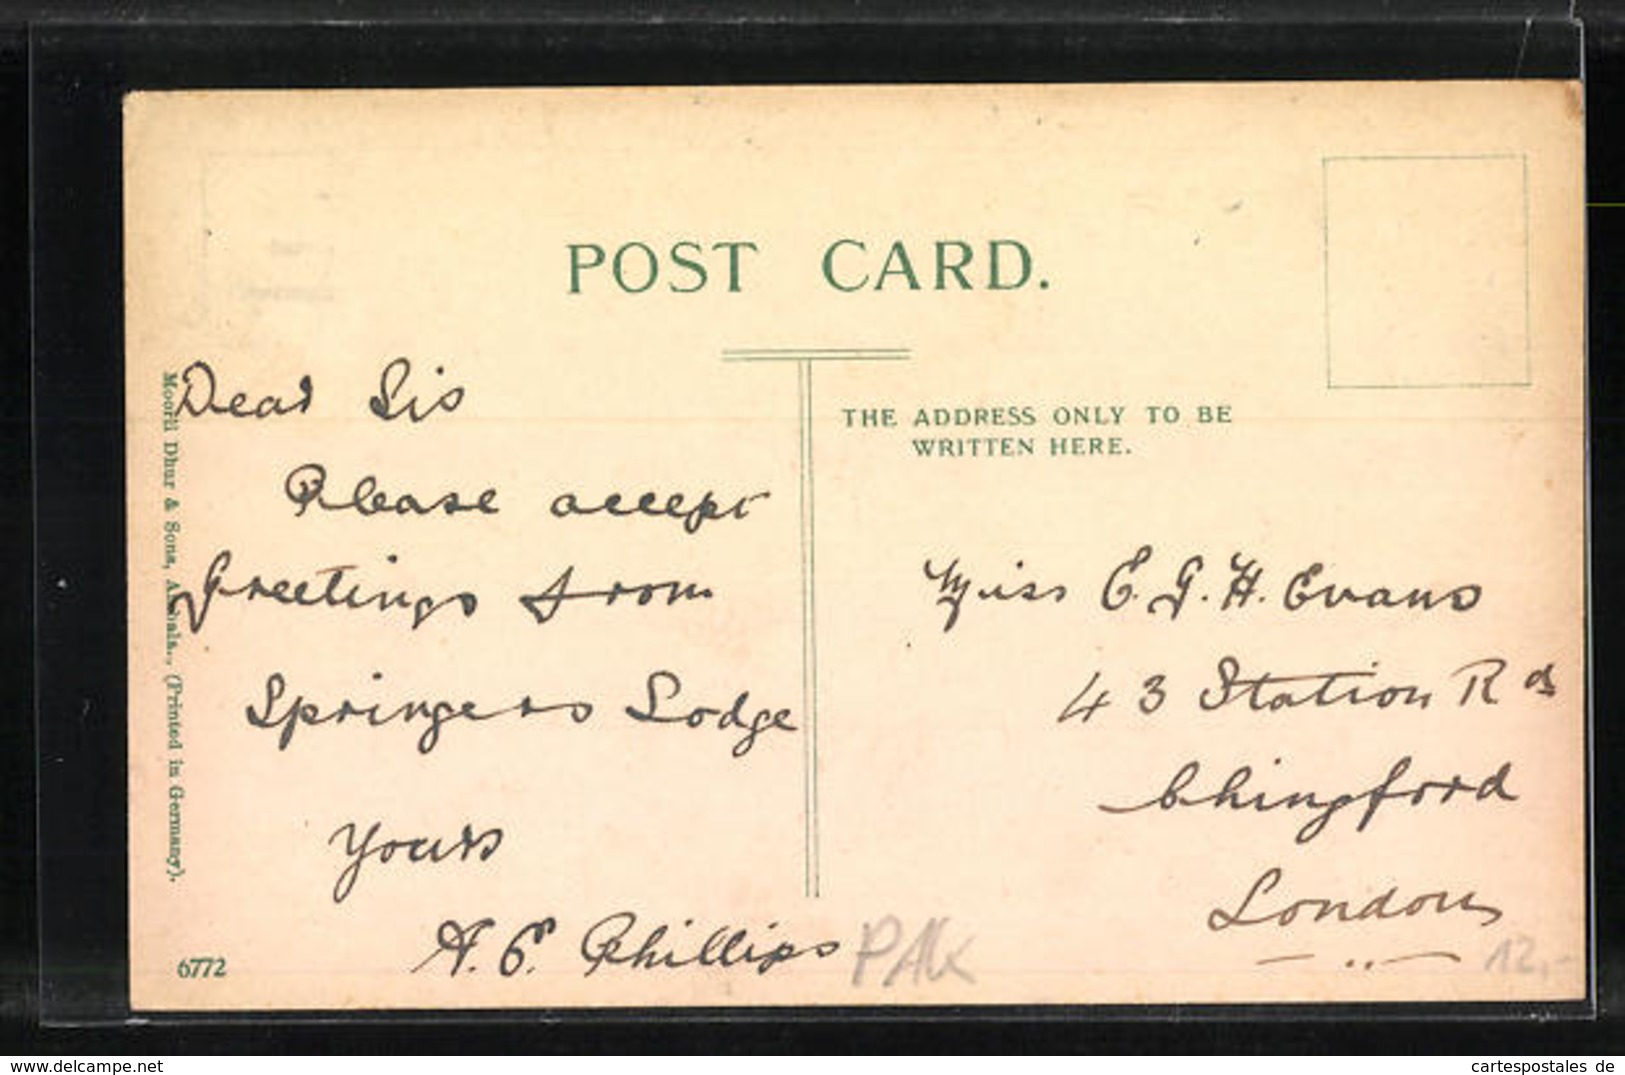 POST CARD.
Dear Sis
Please accept
Greetings from
Springers Lodge
Yours
A. E. Phillips
THE ADDRESS ONLY TO BE
WRITTEN HERE.
Miss E. G. H. Evans
43 Station Rd
Chingford
London
Moorli Dhur & Sons, (Printed in Germany).
6772
PAK
12,-
cartespostales de
www.delcampe.net